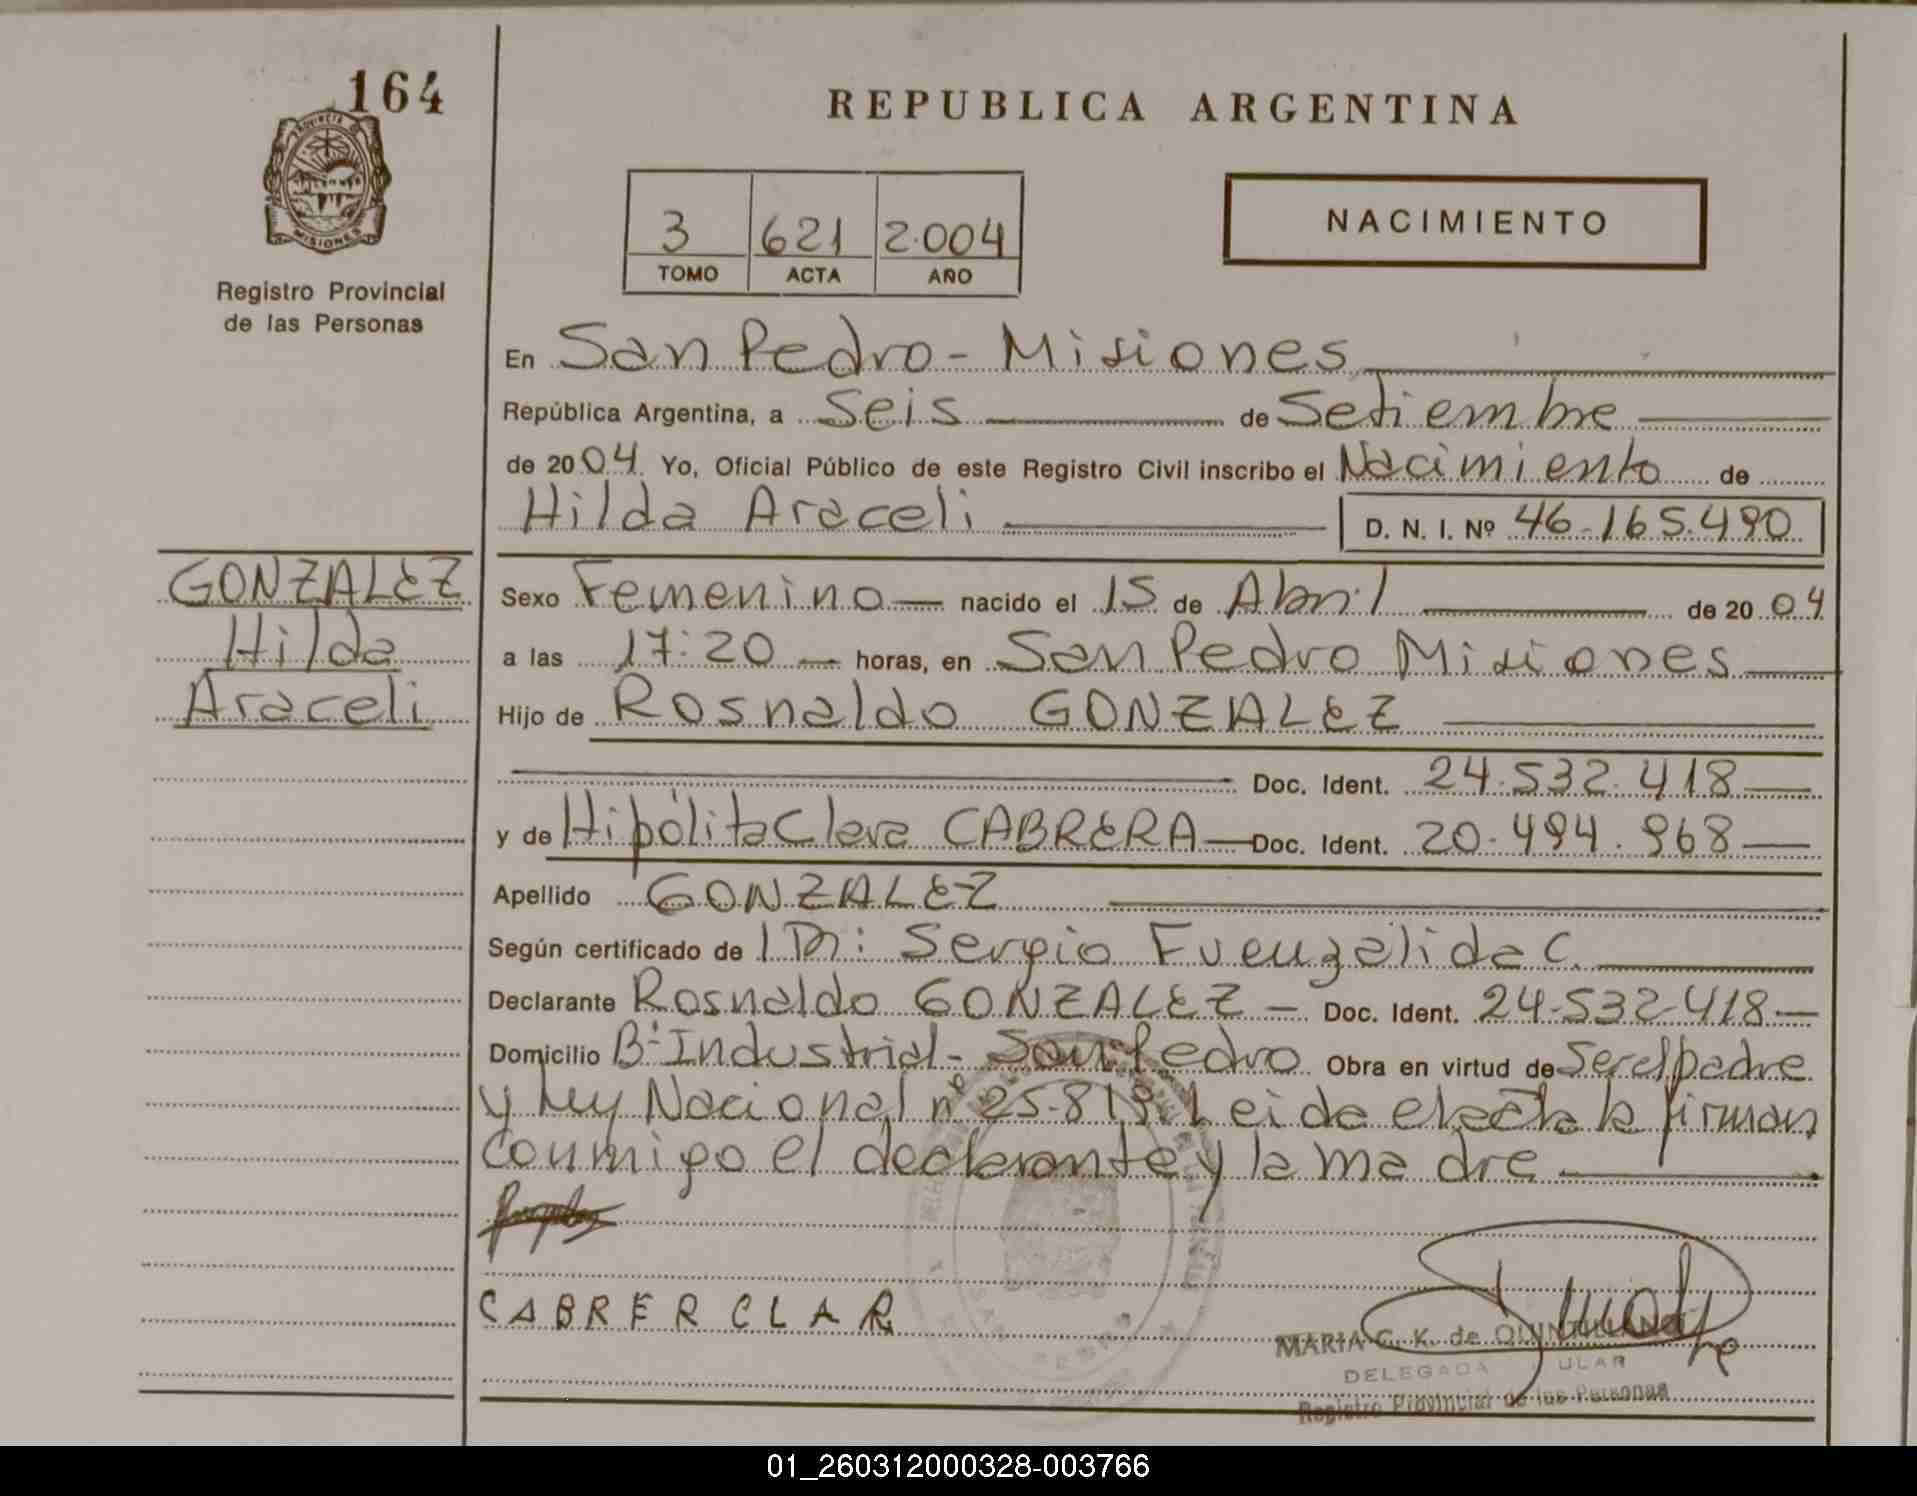 164
PROVINCIA DE
MISIONES
Registro Provincial
de las Personas
REPUBLICA ARGENTINA
3 621 2.004
TOMO ACTA AÑO
NACIMIENTO
En San Pedro - Misiones
República Argentina, a Seis de Setiembre
de 2004. Yo, Oficial Público de este Registro Civil inscribo el Nacimiento de
Hilda Araceli D. N. I. Nº 46.165.490
GONZALEZ
Hilda
Araceli
Sexo Femenino nacido el 15 de Abril de 2004
a las 17:20 horas, en San Pedro Misiones
Hijo de Rosnaldo GONZALEZ
Doc. Ident. 24.532.418
y de Hipólita Clara CABRERA Doc. Ident. 20.494.968
Apellido GONZALEZ
Según certificado de Dr: Sergio Fuenzalida C.
Declarante Rosnaldo GONZALEZ Doc. Ident. 24.532.418
Domicilio Bº Industrial - San Pedro Obra en virtud de Ser el padre
y Ley Nacional nº 25.819. Leida el acta la firman
conmigo el declarante y la madre
CABRER CLAR
MARIA C. K. de
DELEGADA
Registro Provincial de las Personas
01_260312000328-003766